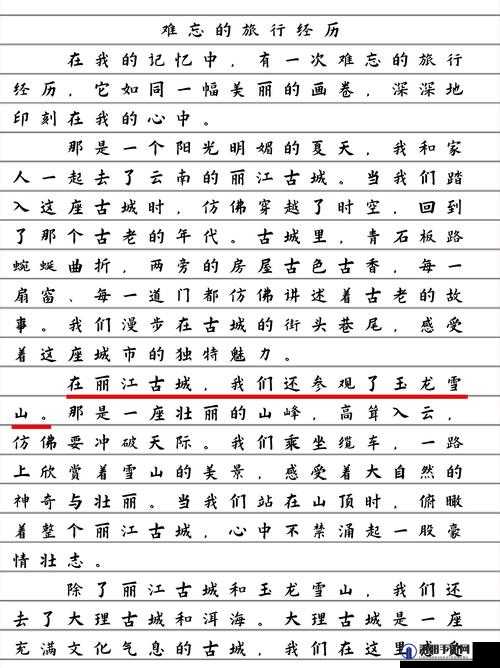 难忘的旅行经历
在我的记忆中，有一次难忘的旅行
经历，它如同一幅美丽的画卷，深深地
印刻在我的心中。
那是一个阳光明媚的夏天，我和家
人一起去了云南的丽江古城。当我们踏
入这座古城时，仿佛穿越了时空，回到
了那个古老的年代。古城里，青石板路
蜿蜒曲折，两旁的房屋古色古香，每一
扇窗、每一道门都仿佛讲述着古老的故
事。我们漫步在古城的街头巷尾，感受
着这座城市的独特魅力。
在丽江古城，我们还参观了玉龙雪
山。那是一座壮丽的山峰，高耸入云，
仿佛要冲破天际。我们乘坐缆车，一路
上欣赏着雪山的美景，感受着大自然的
神奇与壮丽。当我们站在山顶时，俯瞰
着整个丽江古城，心中不禁涌起一股豪
情壮志。
除了丽江古城和玉龙雪山，我们还
去了大理古城和洱海。大理古城是一座
充满文化气息的古城，我们在这里感